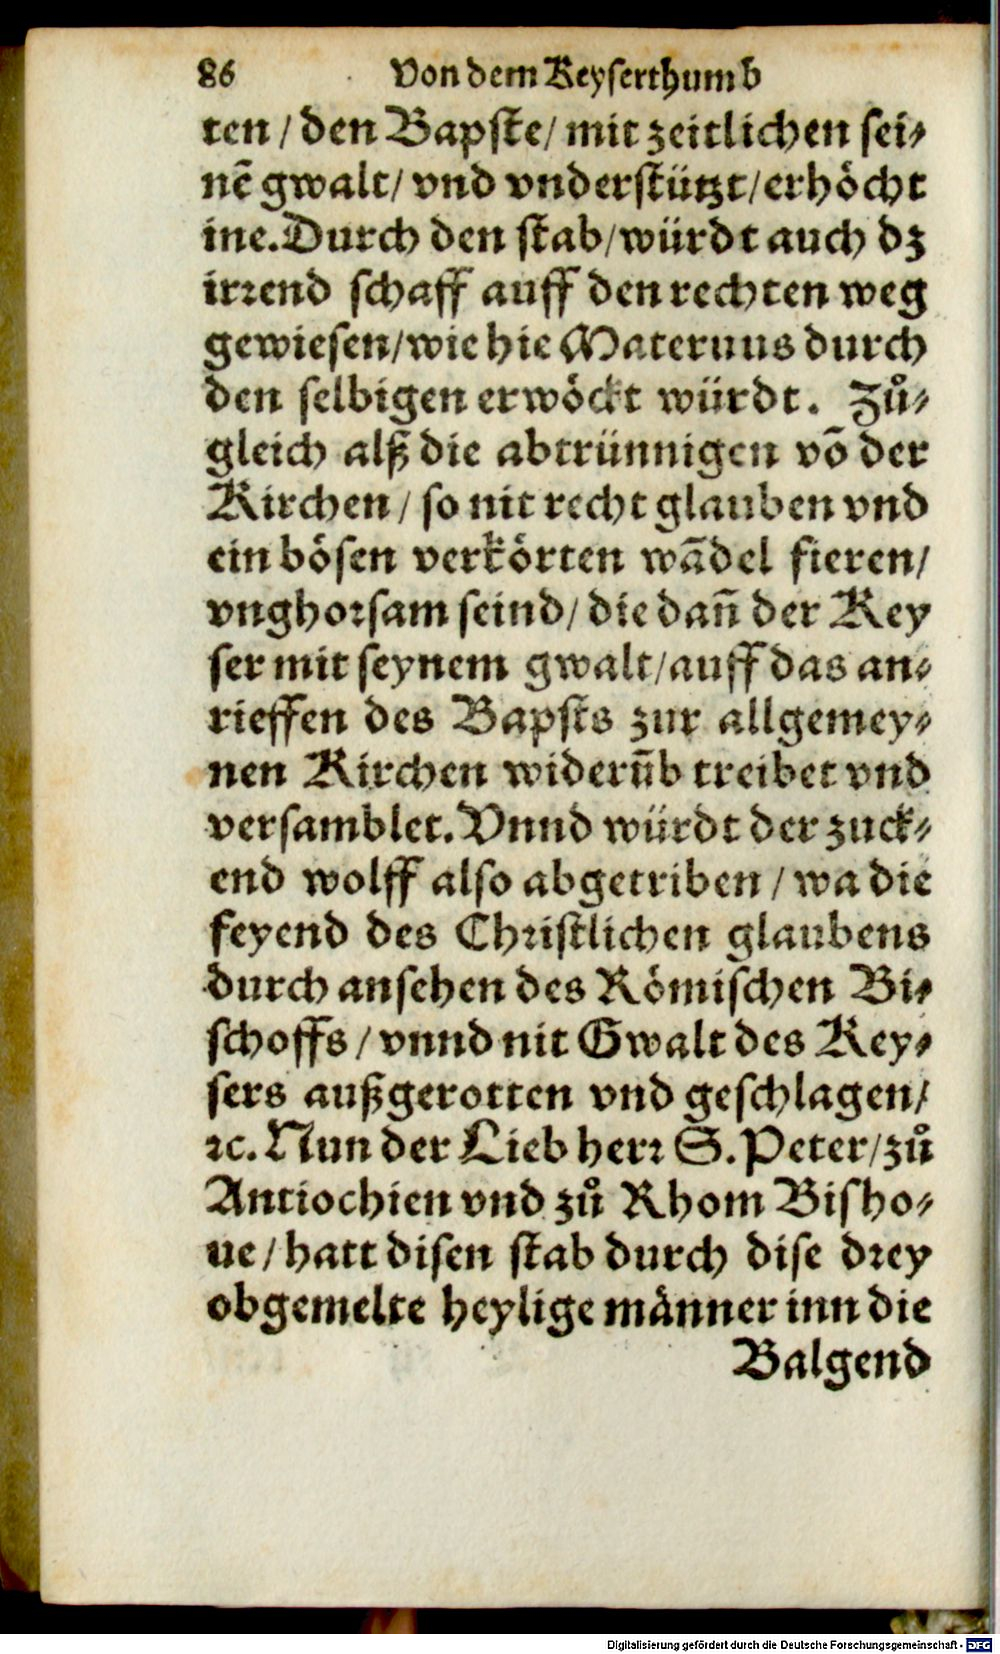 86 Von dem Keyserthumb
ten / den Bapste / mit zeitlichen sei⸗
nē gwalt / vnd vnderstützt / erhöcht
ine. Durch den stab / würdt auch dz
irrend schaff auff den rechten weg
gewiesen / wie hie Maternus durch
den selbigen erwöckt würdt. Zů⸗
gleich alß die abtrünnigen vō der
Kirchen / so nit recht glauben vnd
ein bösen verkörten wādel fieren /
vnghorsam seind / die dañ der Key
ser mit seynem gwalt / auff das an⸗
rieffen des Bapsts zur allgemey⸗
nen Kirchen widerūb treibet vnd
versamblet. Vnnd würdt der zuck⸗
end wolff also abgetriben / wa die
feyend des Christlichen glaubens
durch ansehen des Römischen Bi⸗
schoffs / vnnd nit Gwalt des Key⸗
sers außgerotten vnd geschlagen /
ꝛc. Nun der Lieb herr S. Peter / zů
Antiochien vnd zů Rhom Bisho⸗
ue / hatt disen stab durch dise drey
obgemelte heylige männer inn die
Balgend
Digitalisierung gefördert durch die Deutsche Forschungsgemeinschaft - DFG